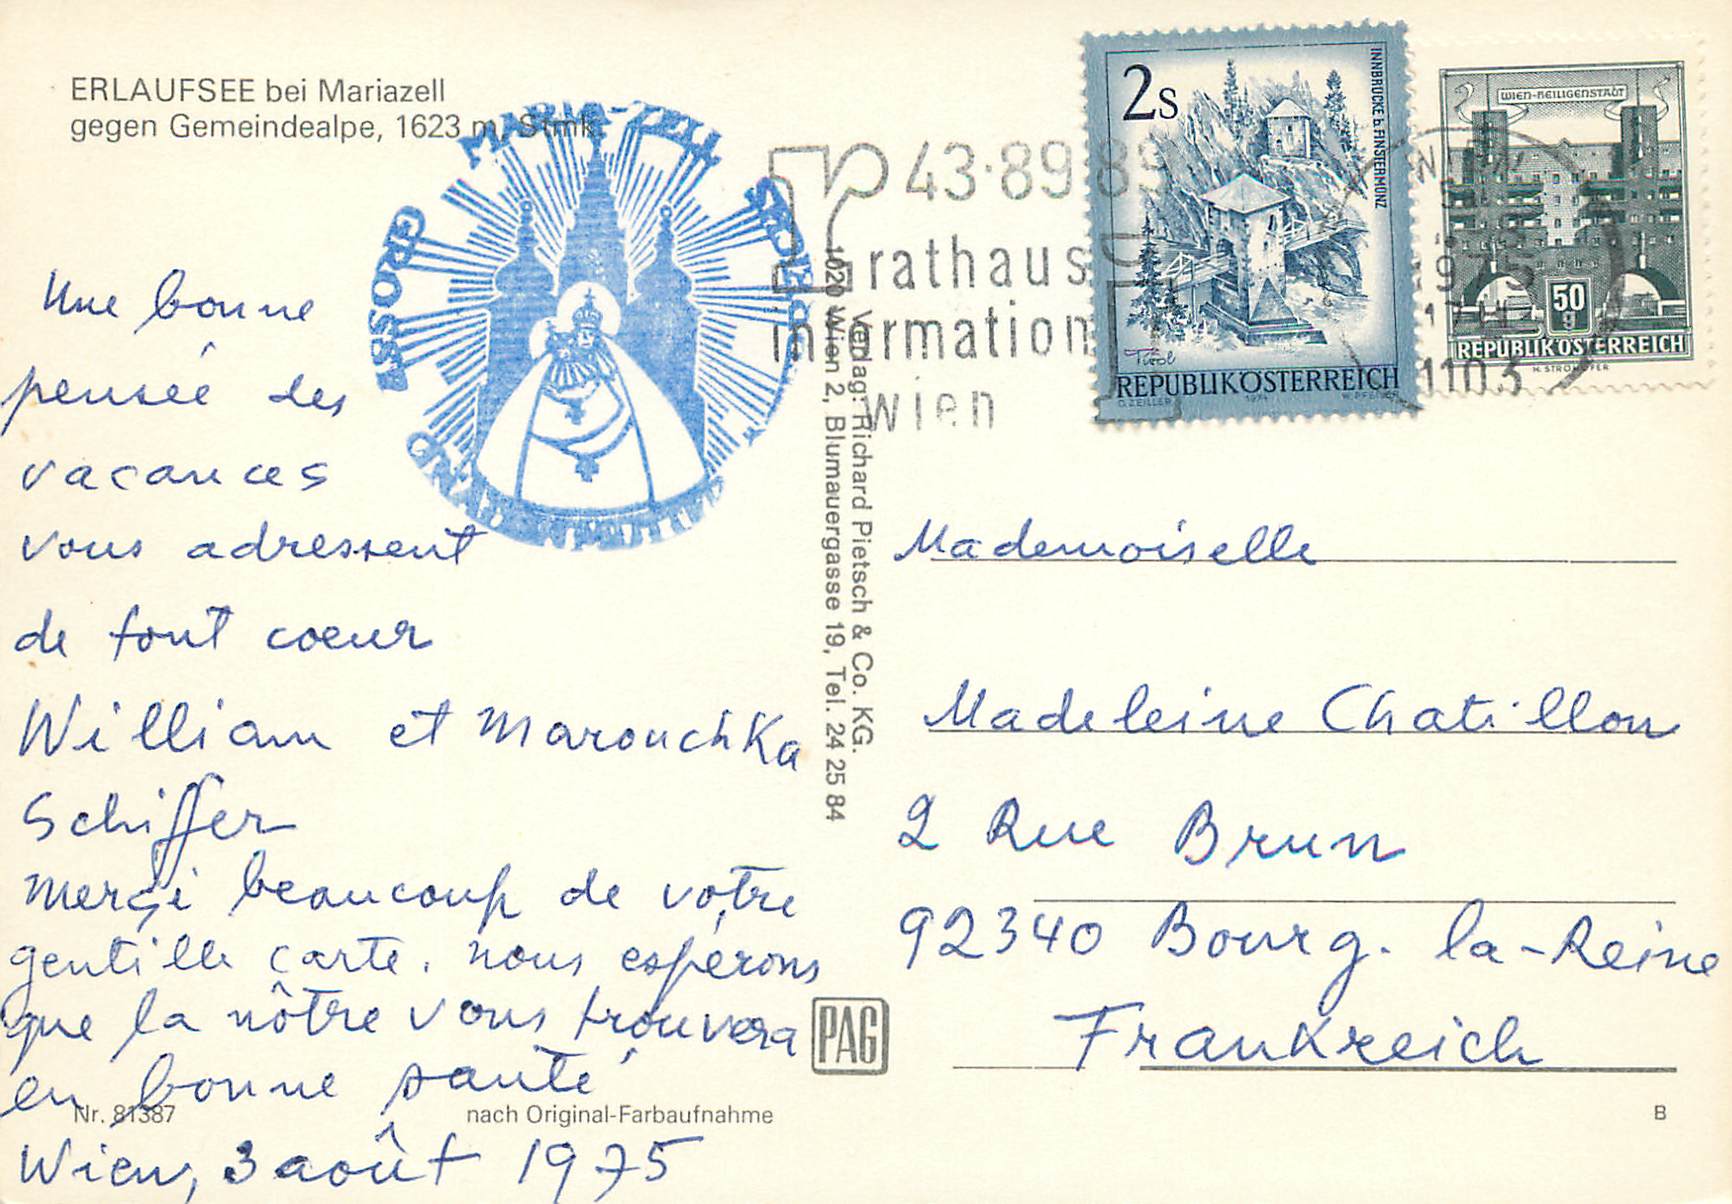 ERLAUFSEE bei Mariazell
gegen Gemeindealpe, 1623 m, Stmk.
MARIA-ZELL
GROSSE
Une bonne
pensée des
vacances
vous adressent
de tout coeur
William et Marouchka
Schiffer
Merci beaucoup de votre
gentille carte, nous espérons
que la nôtre vous trouvera
en bonne santé
Wien, 3 août 1975
Nr. 81387
nach Original-Farbaufnahme
Verlag: Richard Pietsch & Co. KG.
1020 Wien 2, Blumauergasse 19, Tel. 24 25 84
PAG
43·89 89
rathaus
information
wien
2S
INNBRÜCKE b. FINSTERMÜNZ
Tirol
REPUBLIK ÖSTERREICH
G. ZEILLER 1974 W. PFEILER
WIEN-HEILIGENSTADT
50
g
REPUBLIK ÖSTERREICH
H. STROHOFER
WIEN
1975
1103
Mademoiselle
Madeleine Chatillon
2 Rue Brun
92340 Bourg-la-Reine
Frankreich
B